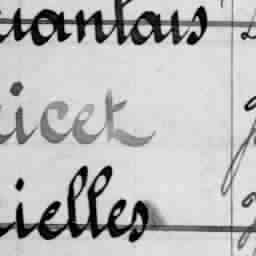 uantais
icet
ielles